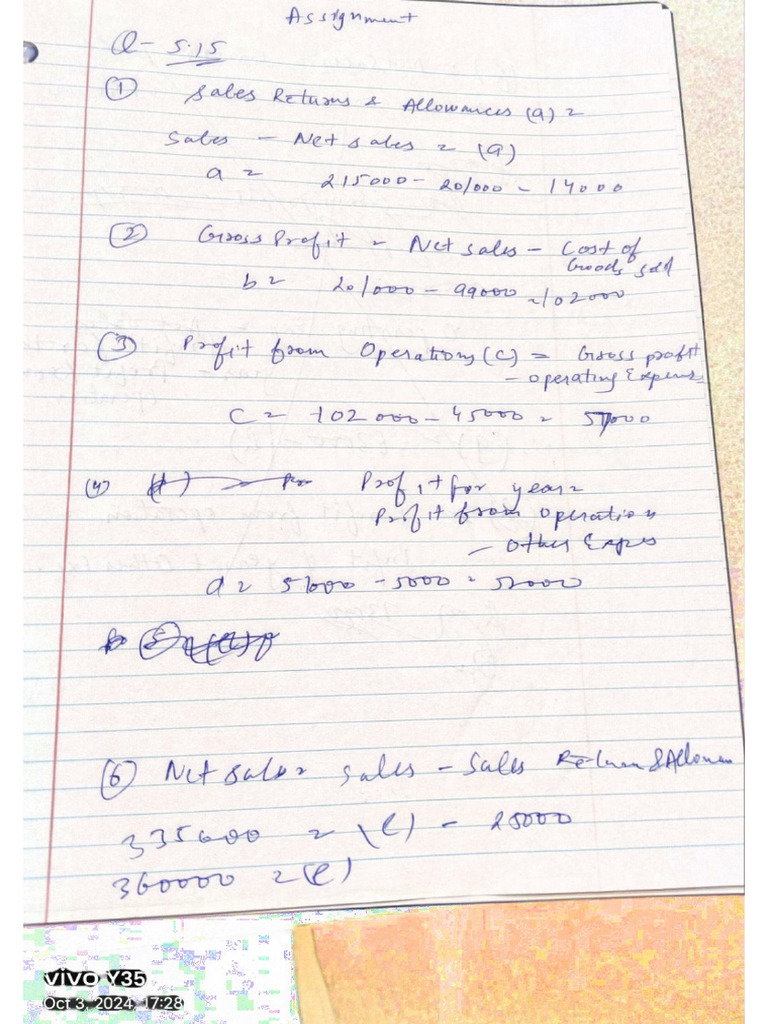 Assignment
Q- 5.15
① Sales Returns & Allowances (a) =
Sales - Net sales = (a)
a = 215000 - 201000 - 14000
② Gross Profit = Net sales - Cost of
Goods sold
b = 201000 - 99000 = 102000
③ Profit from Operations (C) = Gross profit
- operating Expenses
C = 102000 - 45000 = 57000
(4) Profit for year =
Profit from operation
- Other Expes
d = 57000 - 5000 = 52000
⑥ Net sales = sales - Sales Return & Allowan
335000 = (e) - 25000
360000 = (e)
vivo Y35
Oct 3, 2024, 17:28